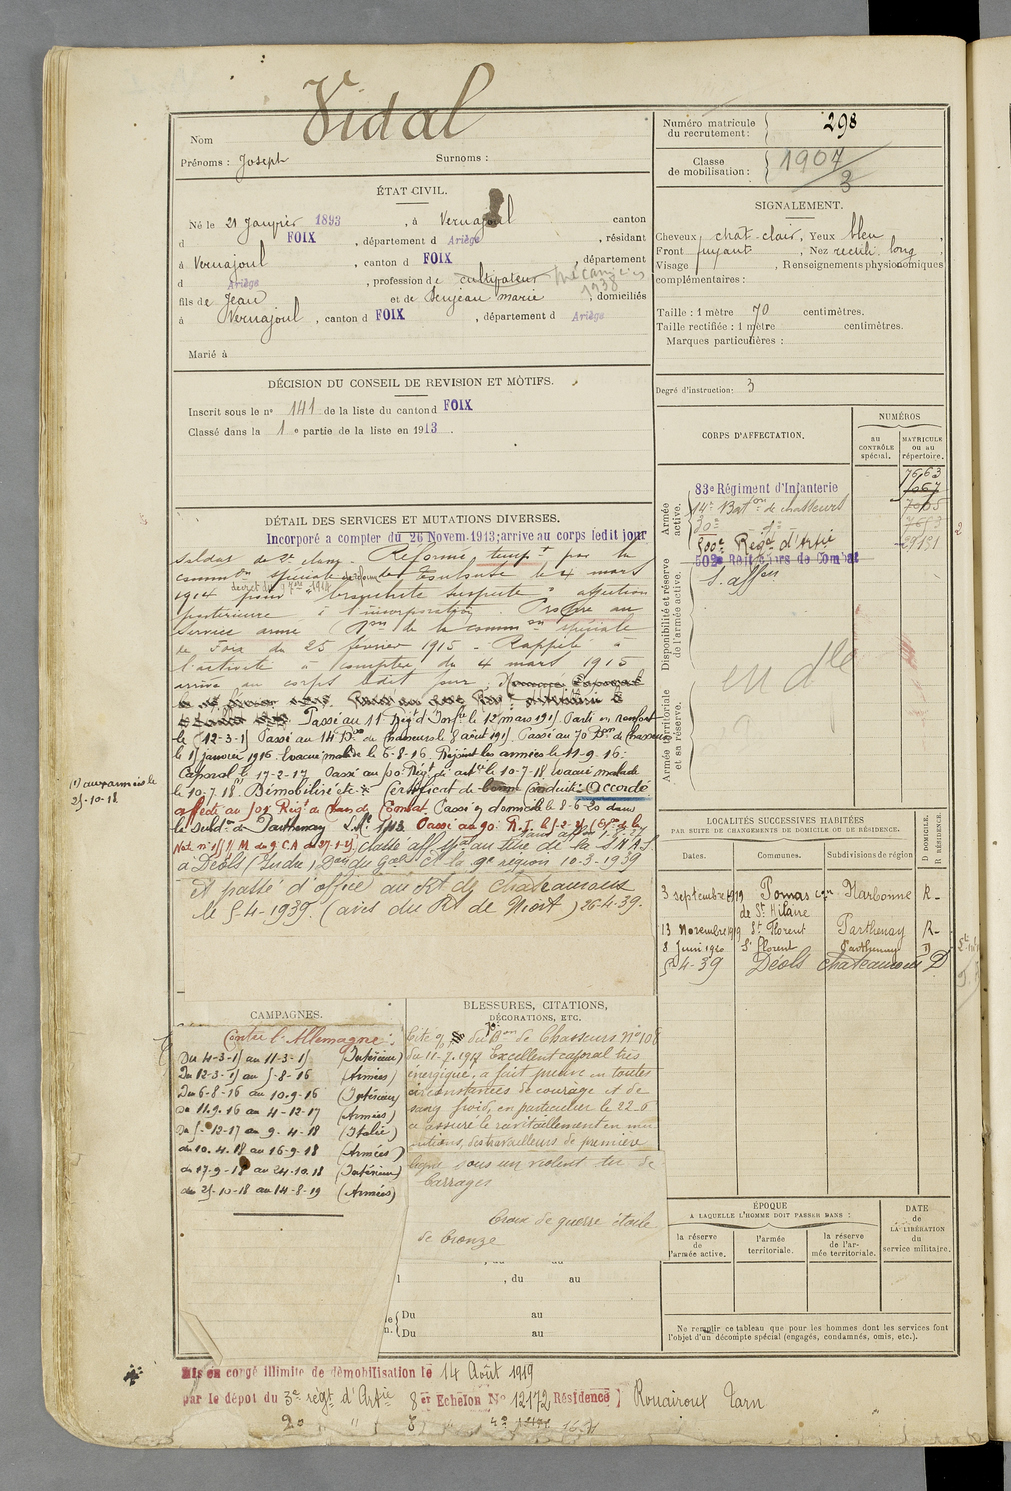 Vidal
Nom
Prénoms : Joseph Surnoms :
Numéro matricule du recrutement : 298
Classe de mobilisation : 1907/3
ÉTAT CIVIL.
Né le 21 Janvier 1893, à Vernajoul canton
d FOIX, département d Ariège, résidant
à Vernajoul, canton d FOIX, département
d Ariège, profession de cultivateur mécanicien 1938
fils de Jean et de Senjean marie, domiciliés
à Vernajoul, canton d FOIX, département d Ariège
Marié à
SIGNALEMENT.
Cheveux chat-clair, Yeux bleu,
Front fuyant, Nez rectil. long,
Visage , Renseignements physionomiques
complémentaires :
Taille : 1 mètre 70 centimètres.
Taille rectifiée : 1 mètre centimètres.
Marques particulières :
Degré d'instruction : 3
DÉCISION DU CONSEIL DE REVISION ET MOTIFS.
Inscrit sous le n° 141 de la liste du canton d FOIX
Classé dans la 1e partie de la liste en 1913.
CORPS D'AFFECTATION.
NUMÉROS
au CONTRÔLE spécial.
MATRICULE ou au répertoire.
Armée active.
83e Régiment d'Infanterie 7663
14e Baton de chasseurs
30e d°
500e Régt d'Artie
502e Régt Chars de Combat
S. affon
Disponibilité et réserve de l'armée active.
Armée territoriale et sa réserve.
en dle
DÉTAIL DES SERVICES ET MUTATIONS DIVERSES.
Incorporé a compter du 26 Novem. 1913; arrive au corps ledit jour
soldat de 2e classe. Réformé tempt par la
common spéciale de Toulouse le 4 mars
1914 pour "bronchite suspecte" affection
postérieure à l'incorporation. Propre au
Service armé Don de la common spéciale
de Foix du 25 février 1915. Rappelé à
l'activité à compter du 4 mars 1915
arrivé au corps ledit jour.
Passé au 11e Régt d'Infrie le 12 mars 1915 Parti en renfort
le 12-3-15 Passé au 14 Bon de chasseurs le 8 août 1915. Passé au 70 Bon de chasseurs
le 15 janvier 1916. Evacué malade le 6-8-16. Rejoint les armées le 11-9-16.
Caporal le 17-2-17. Passé au Régt de artie le 10-7-18 évacué malade
le 10-7-18. Démobilisé etc. Certificat de bonne Conduite: Accordé
(1) aux armées le 25-10-18
affecté au 501 Régt de Chars de Combat. Passé en domicile le 8-6-20 dans
la subdon de Parthenay
Classé aff. spal au titre de la S.N.A.S.
à Déols (Indre) 9e région 10-3-1939
Et passé d'office au Rt de Chateauroux
le 5-4-1939. (avis du Rt de Niort) 26-4-39.
LOCALITÉS SUCCESSIVES HABITÉES
PAR SUITE DE CHANGEMENTS DE DOMICILE OU DE RÉSIDENCE.
Dates. Communes. Subdivisions de région D DOMICILE. R RÉSIDENCE.
3 septembre 1919 Pomas con de St Hilaire Narbonne R-
13 Novembre 1919 St Florent Parthenay R-
8 Juin 1920 St Florent Parthenay D
5-4-39 Déols Chateauroux D
CAMPAGNES.
Contre l'Allemagne:
Du 4-3-15 au 11-3-15 (Intérieur)
Du 12-3-15 au 5-8-16 (Armées)
Du 6-8-16 au 10-9-16 (Intérieur)
Du 11-9-16 au 4-12-17 (Armées)
Du 5-12-17 au 9-4-18 (Italie)
du 10.4.18 au 16-9-18 (Armées)
du 17-9-18 au 24-10.18 (Intérieur)
du 25-10-18 au 14-8-19 (Armées)
BLESSURES, CITATIONS, DÉCORATIONS, ETC.
Cité o/ du 70 Bon de Chasseurs N° 108
du 11-7-1917 Excellent caporal très
énergique, a fait preuve en toutes
circonstances de courage et de
sang froid, en particulier le 22-6
a assuré le ravitaillement en mu
nitions, des travailleurs de première
ligne sous un violent tir de
barrages
Croix de guerre étoile
de bronze
, du au
Du au
Du au
ÉPOQUE
A LAQUELLE L'HOMME DOIT PASSER DANS :
la réserve de l'armée active.
l'armée territoriale.
la réserve de l'armée territoriale.
DATE de LA LIBÉRATION du service militaire.
Ne remplir ce tableau que pour les hommes dont les services font
l'objet d'un décompte spécial (engagés, condamnés, omis, etc.).
Mis en congé illimité de démobilisation le 14 Août 1919
par le dépot du 3e régt d'Artie 8er Echelon N° 12172 Résidence Rouairoux Tarn